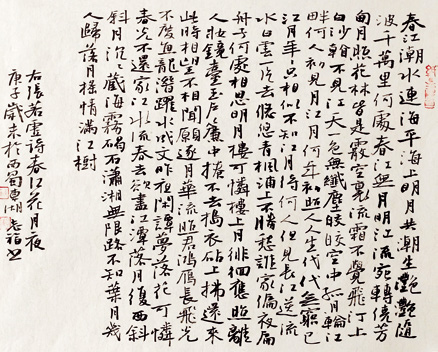 春江潮水連海平海上明月共潮生灩灩隨
波千萬里何處春江無月明江流宛轉繞芳
甸月照花林皆是霰空裏流霜不覺飛汀上
白沙看不見江天一色無纖塵皎皎空中孤月輪江
畔何人初見月江月何年初照人人生代代無窮已
江月年年只相似不知江月待何人但見長江送流
水白雲一片去悠悠青楓浦上不勝愁誰家今夜扁
舟子何處相思明月樓可憐樓上月徘徊應照離
人妝鏡臺玉戶簾中捲不去搗衣砧上拂還來
此時相望不相聞願逐月華流照君鴻雁長飛光
不度魚龍潛躍水成文昨夜閑潭夢落花可憐
春半不還家江水流春去欲盡江潭落月復西斜
斜月沉沉藏海霧碣石瀟湘無限路不知乘月幾
人歸落月搖情滿江樹
右張若虛詩春江花月夜
庚子歲末於西蜀湖